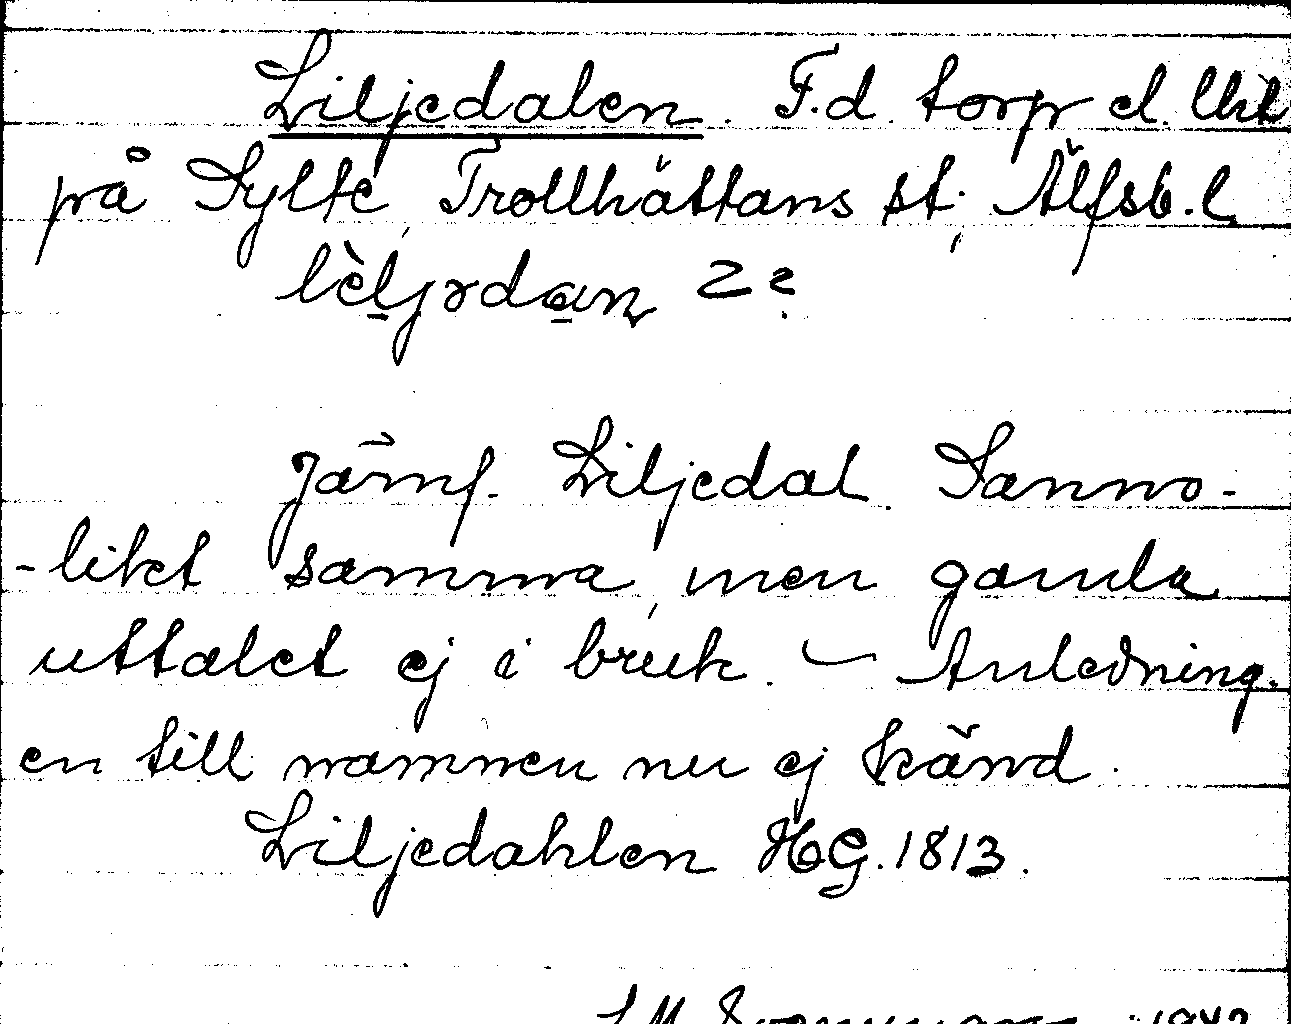 Liljedalen. F.d. torp el. lht
på Sylte, Trollhättans st., Älfsb. l.
lèljədan 2 e.
Jämf. Liljedal. Sanno-
-likt samma, men gamla
uttalet ej i bruk. — Anledning-
en till namnen nu ej känd.
Liljedahlen HG. 1813.